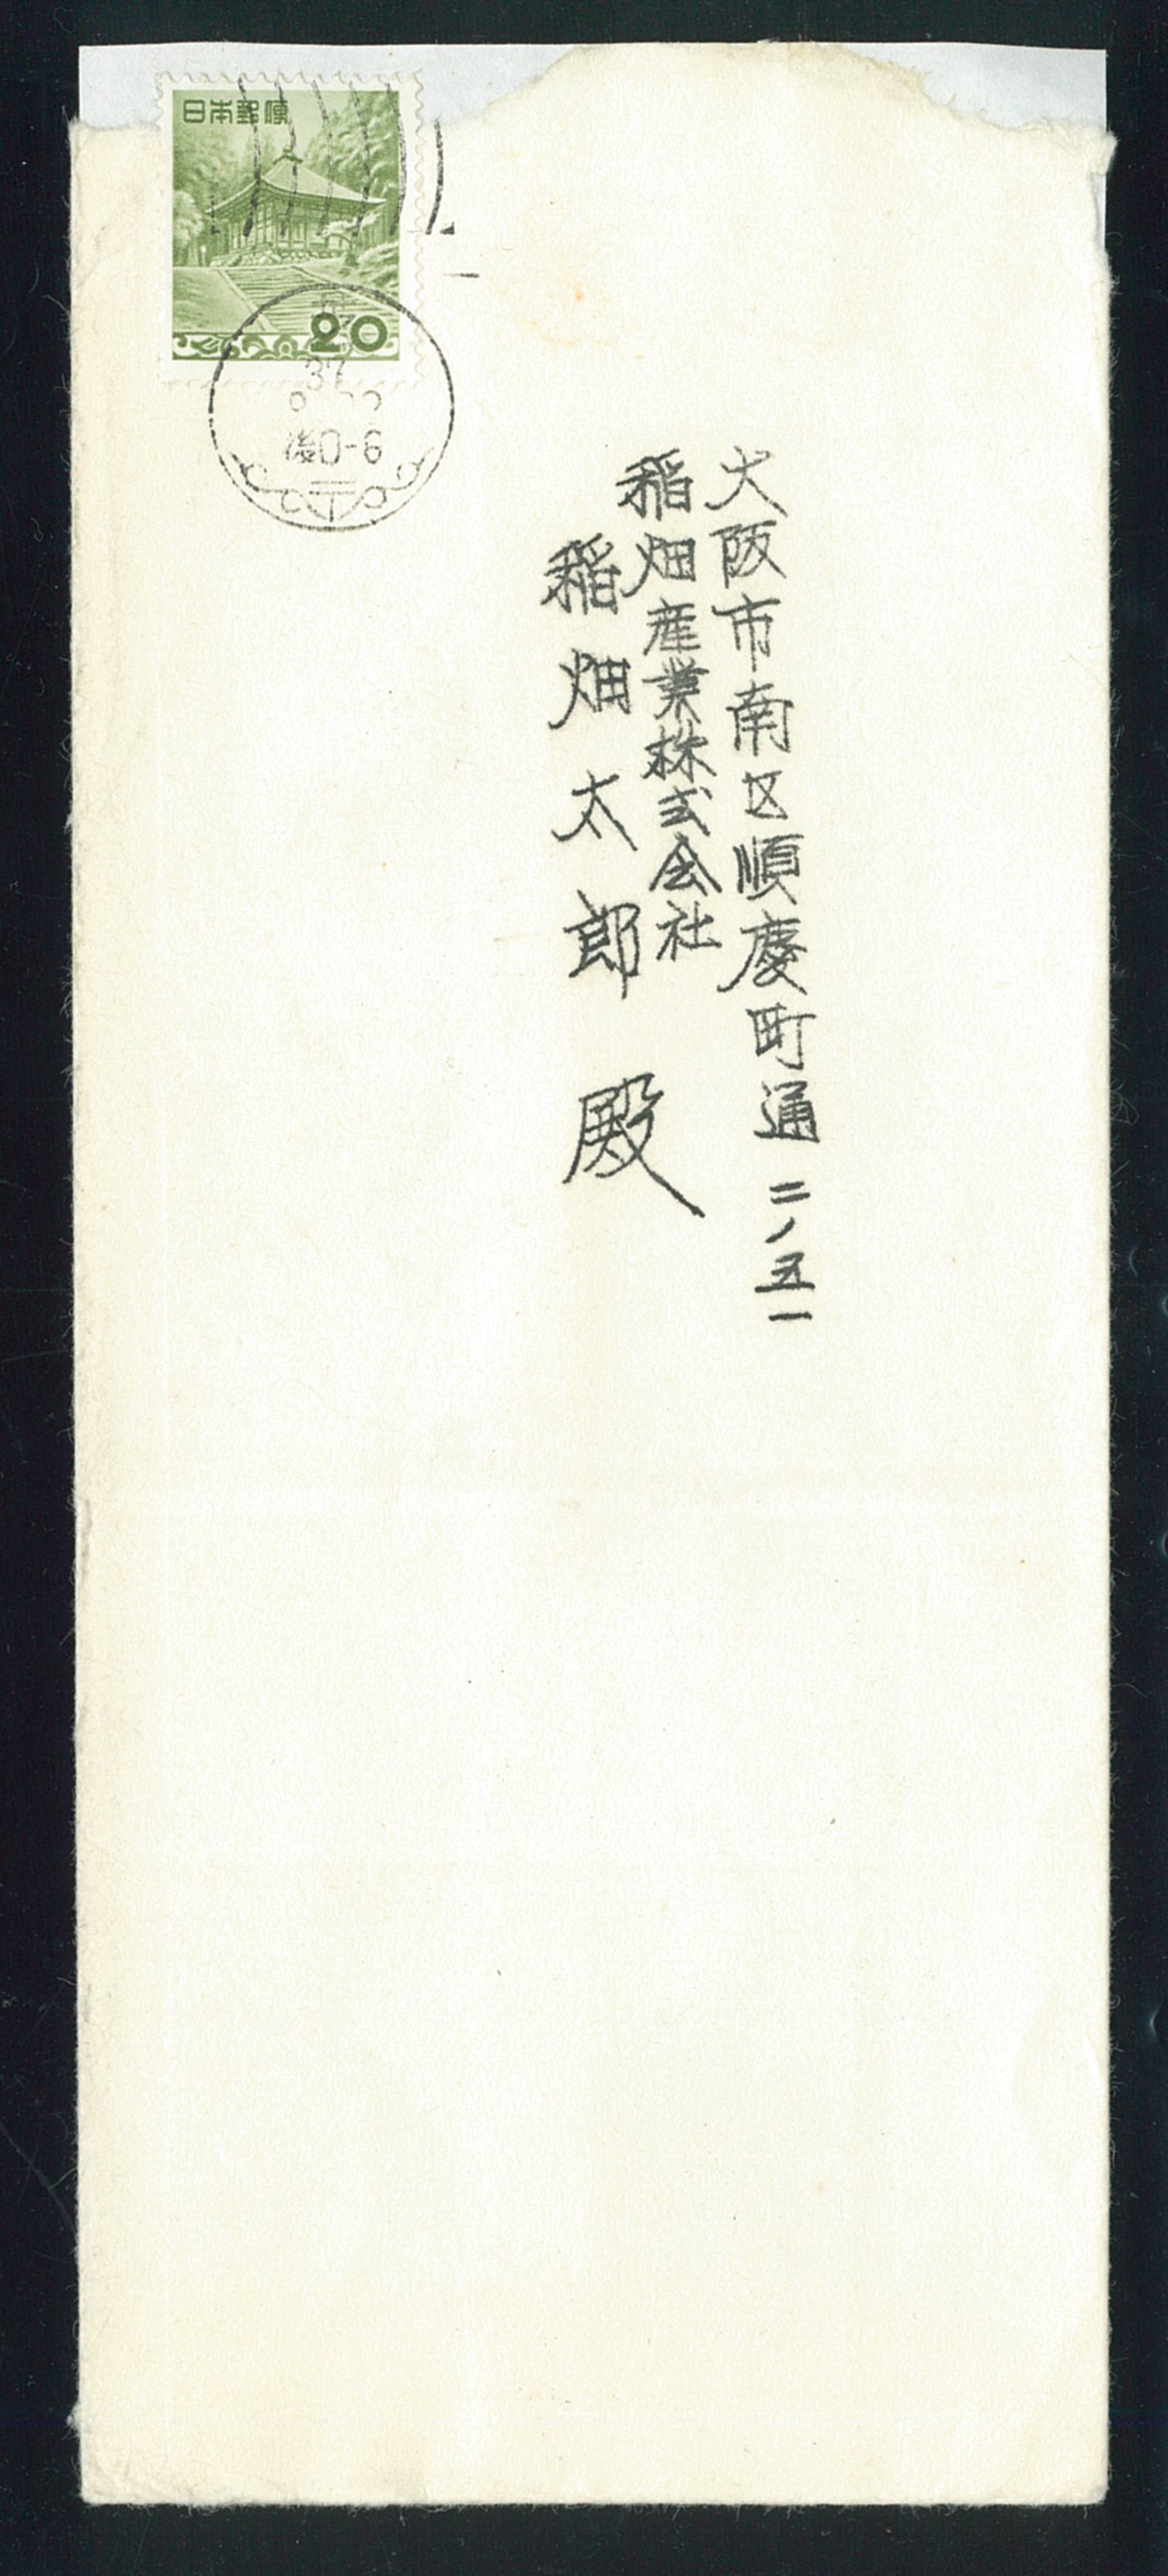 日本郵便
20
37
後0-6
大阪市南区順慶町通二ノ五一
稲畑産業株式会社
稲畑太郎殿